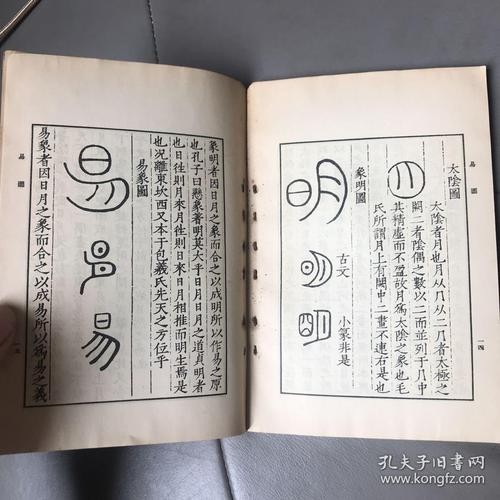 易圖
一四
太陰圖
太陰者月也月从几从二几者太極之
闕二者陰偶之數以二而並列于几中
其精虛而不盈故月爲太陰之象也毛
氏所謂月上有闕中二畫不連右是也
象明圖
明
古文
小篆非是
象明者因日月之象而合之以成明所以作易之原
也孔子曰懸象著明莫大乎日月日月之道貞明者
也日往則月來月往則日來日月相推而明生焉是
也况離東坎西又本于包羲氏先天之方位乎
易象圖
易
易象者因日月之象而合之以成易所以爲易之義
易圖
一五
孔夫子旧书网
www.kongfz.com